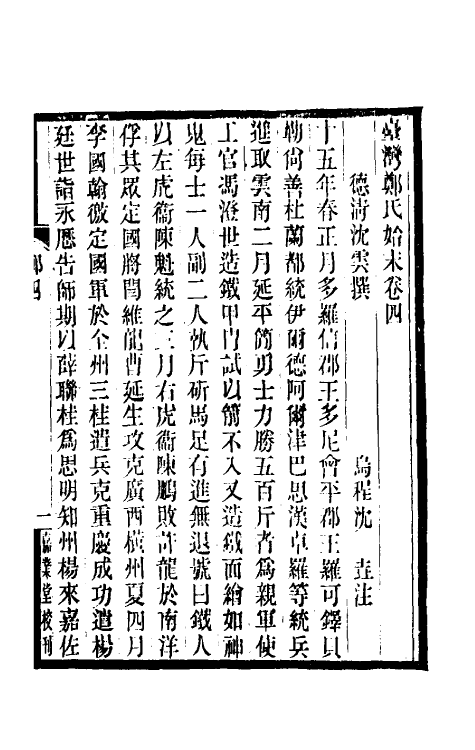 臺灣鄭氏始末卷四
德清沈雲撰 烏程沈 垚注
十五年春正月多羅信郡王多尼會平郡王羅可鐸貝
勒尚善杜蘭都統伊爾德阿爾津巴思漢卓羅等統兵
進取雲南二月延平簡勇士力勝五百斤者爲親軍使
工官馮澄世造鐵甲冑試以箭不入又造鐵面繪如神
鬼每士一人副二人執斤斫馬足有進無退號曰鐵人
以左虎衞陳魁統之三月右虎衞陳鵬敗許龍於南洋
俘其眾定國將閆維龍曹延生攻克廣西橫州夏四月
李國翰徼定國軍於全州三桂遣兵克重慶成功遣楊
廷世詣永歷告師期以薛聯桂爲思明知州楊來嘉佐
鄭四
一
嘉業堂校刊